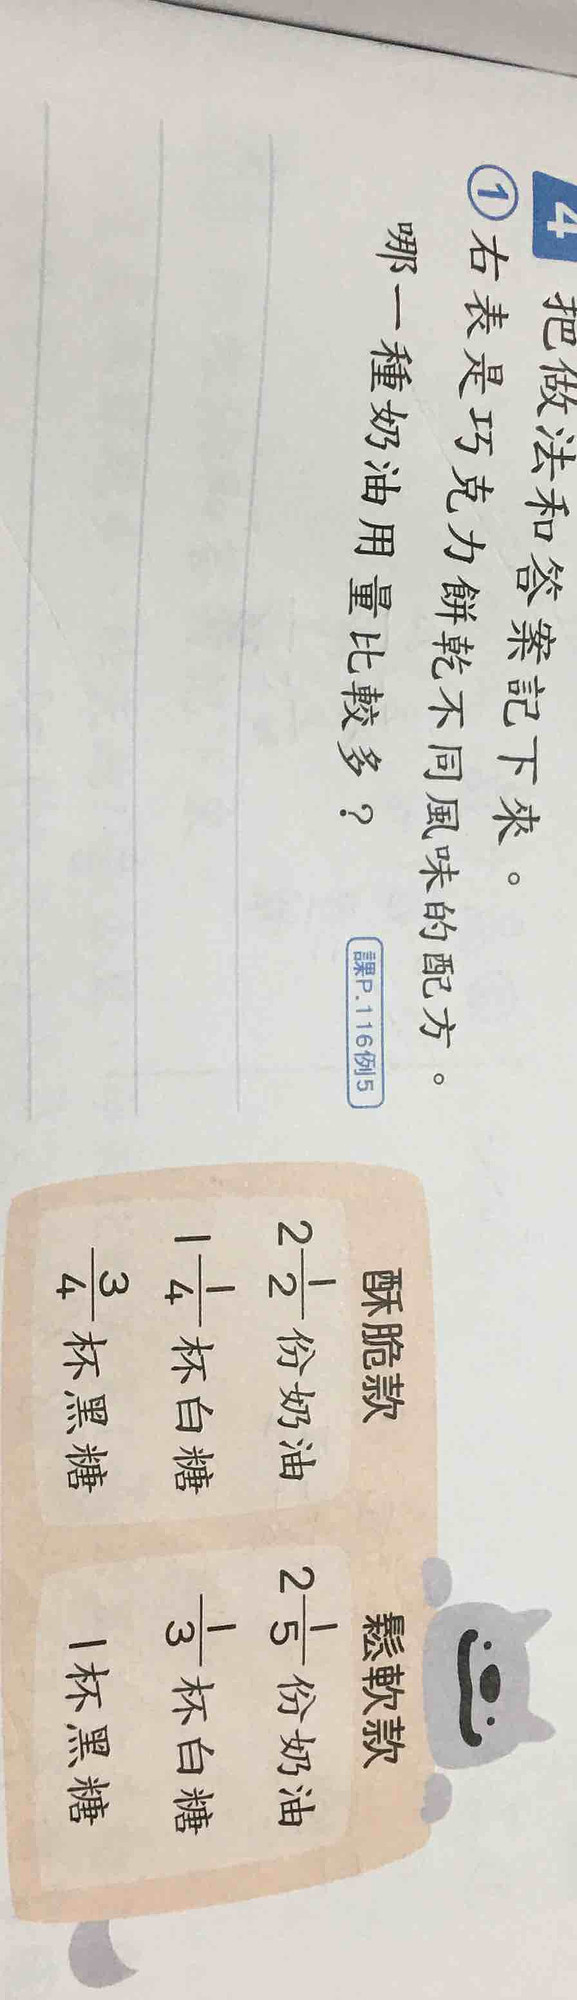 4 把做法和答案記下來。
① 右表是巧克力餅乾不同風味的配方。
哪一種奶油用量比較多?
課P.116例5
酥脆款
2 1/2 份奶油
1 1/4 杯白糖
3/4 杯黑糖
鬆軟款
2 1/5 份奶油
1/3 杯白糖
1杯黑糖